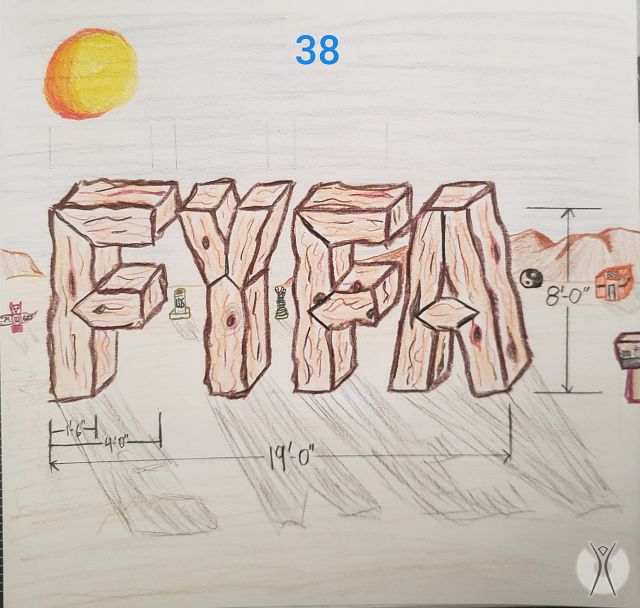 38
FYFA
8'-0"
1'-6"
4'-0"
19'-0"